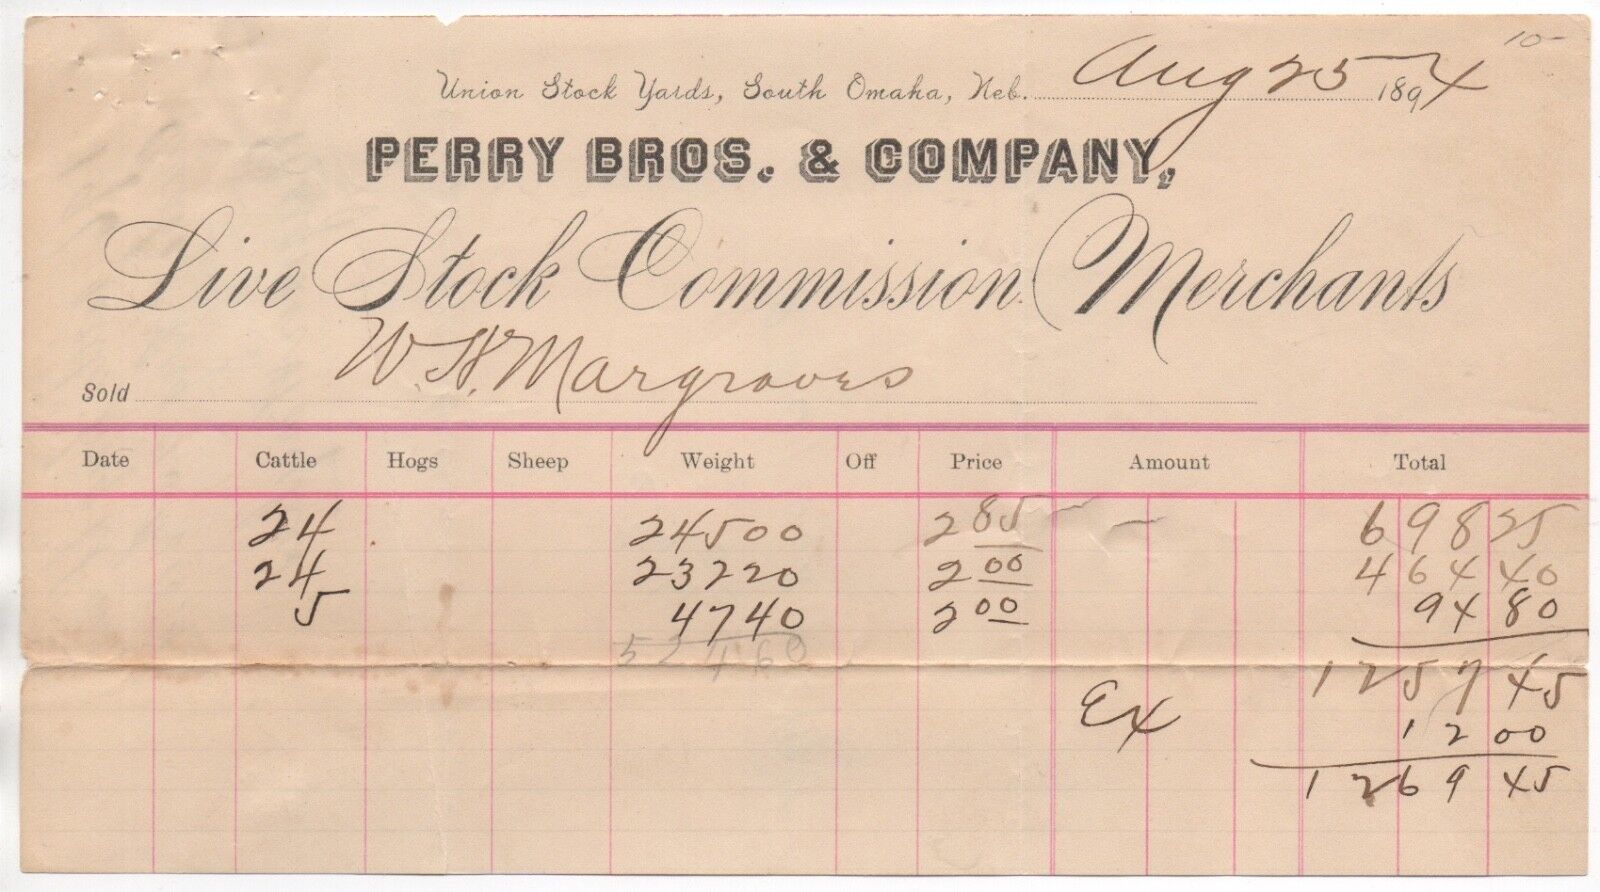 10-
Union Stock Yards, South Omaha, Neb. Aug 25 1894
PERRY BROS. & COMPANY,
Live Stock Commission Merchants
Sold W. H. Margraves
Date Cattle Hogs Sheep Weight Off Price Amount Total
24 24500 2 85 698 25
24 23220 2 00 464 40
5 4740 2 00 94 80
52460
1257 45
Ex 12 00
1269 45